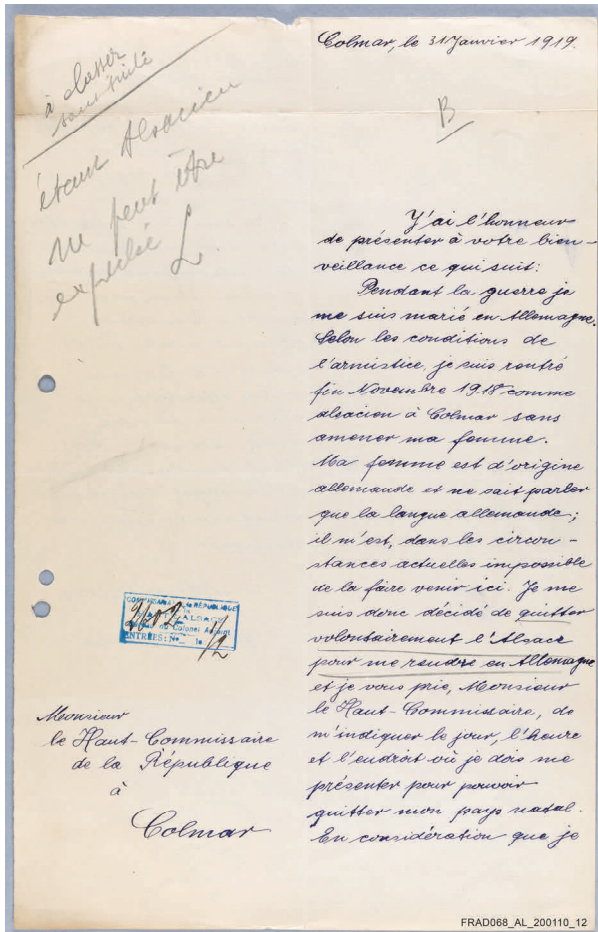 Colmar, le 31 Janvier 1919.
à classer
sans suite
étant Alsacien
ne peut être
expulsé
B
J'ai l'honneur
de présenter à votre bien-
veillance ce qui suit:
Pendant la guerre je
me suis marié en Allemagne.
Selon les conditions de
l'armistice, je suis rentré
fin Novembre 1918 comme
alsacien à Colmar sans
amener ma femme.
Ma femme est d'origine
allemande et ne sait parler
que la langue allemande;
il m'est, dans les circon-
stances actuelles impossible
de la faire venir ici. Je me
suis donc décidé de quitter
volontairement l'Alsace
pour me rendre en Allemagne
et je vous prie, Monsieur
le Haut-Commissaire, de
m'indiquer le jour, l'heure
et l'endroit où je dois me
présenter pour pouvoir
quitter mon pays natal.
En considération que je
COMMISSARIAT de la RÉPUBLIQUE
ALSACE
du Colonel
ENTRÉES: No 2602 le 1/2
Monsieur
le Haut-Commissaire
de la République
à
Colmar
FRAD068_AL_200110_12